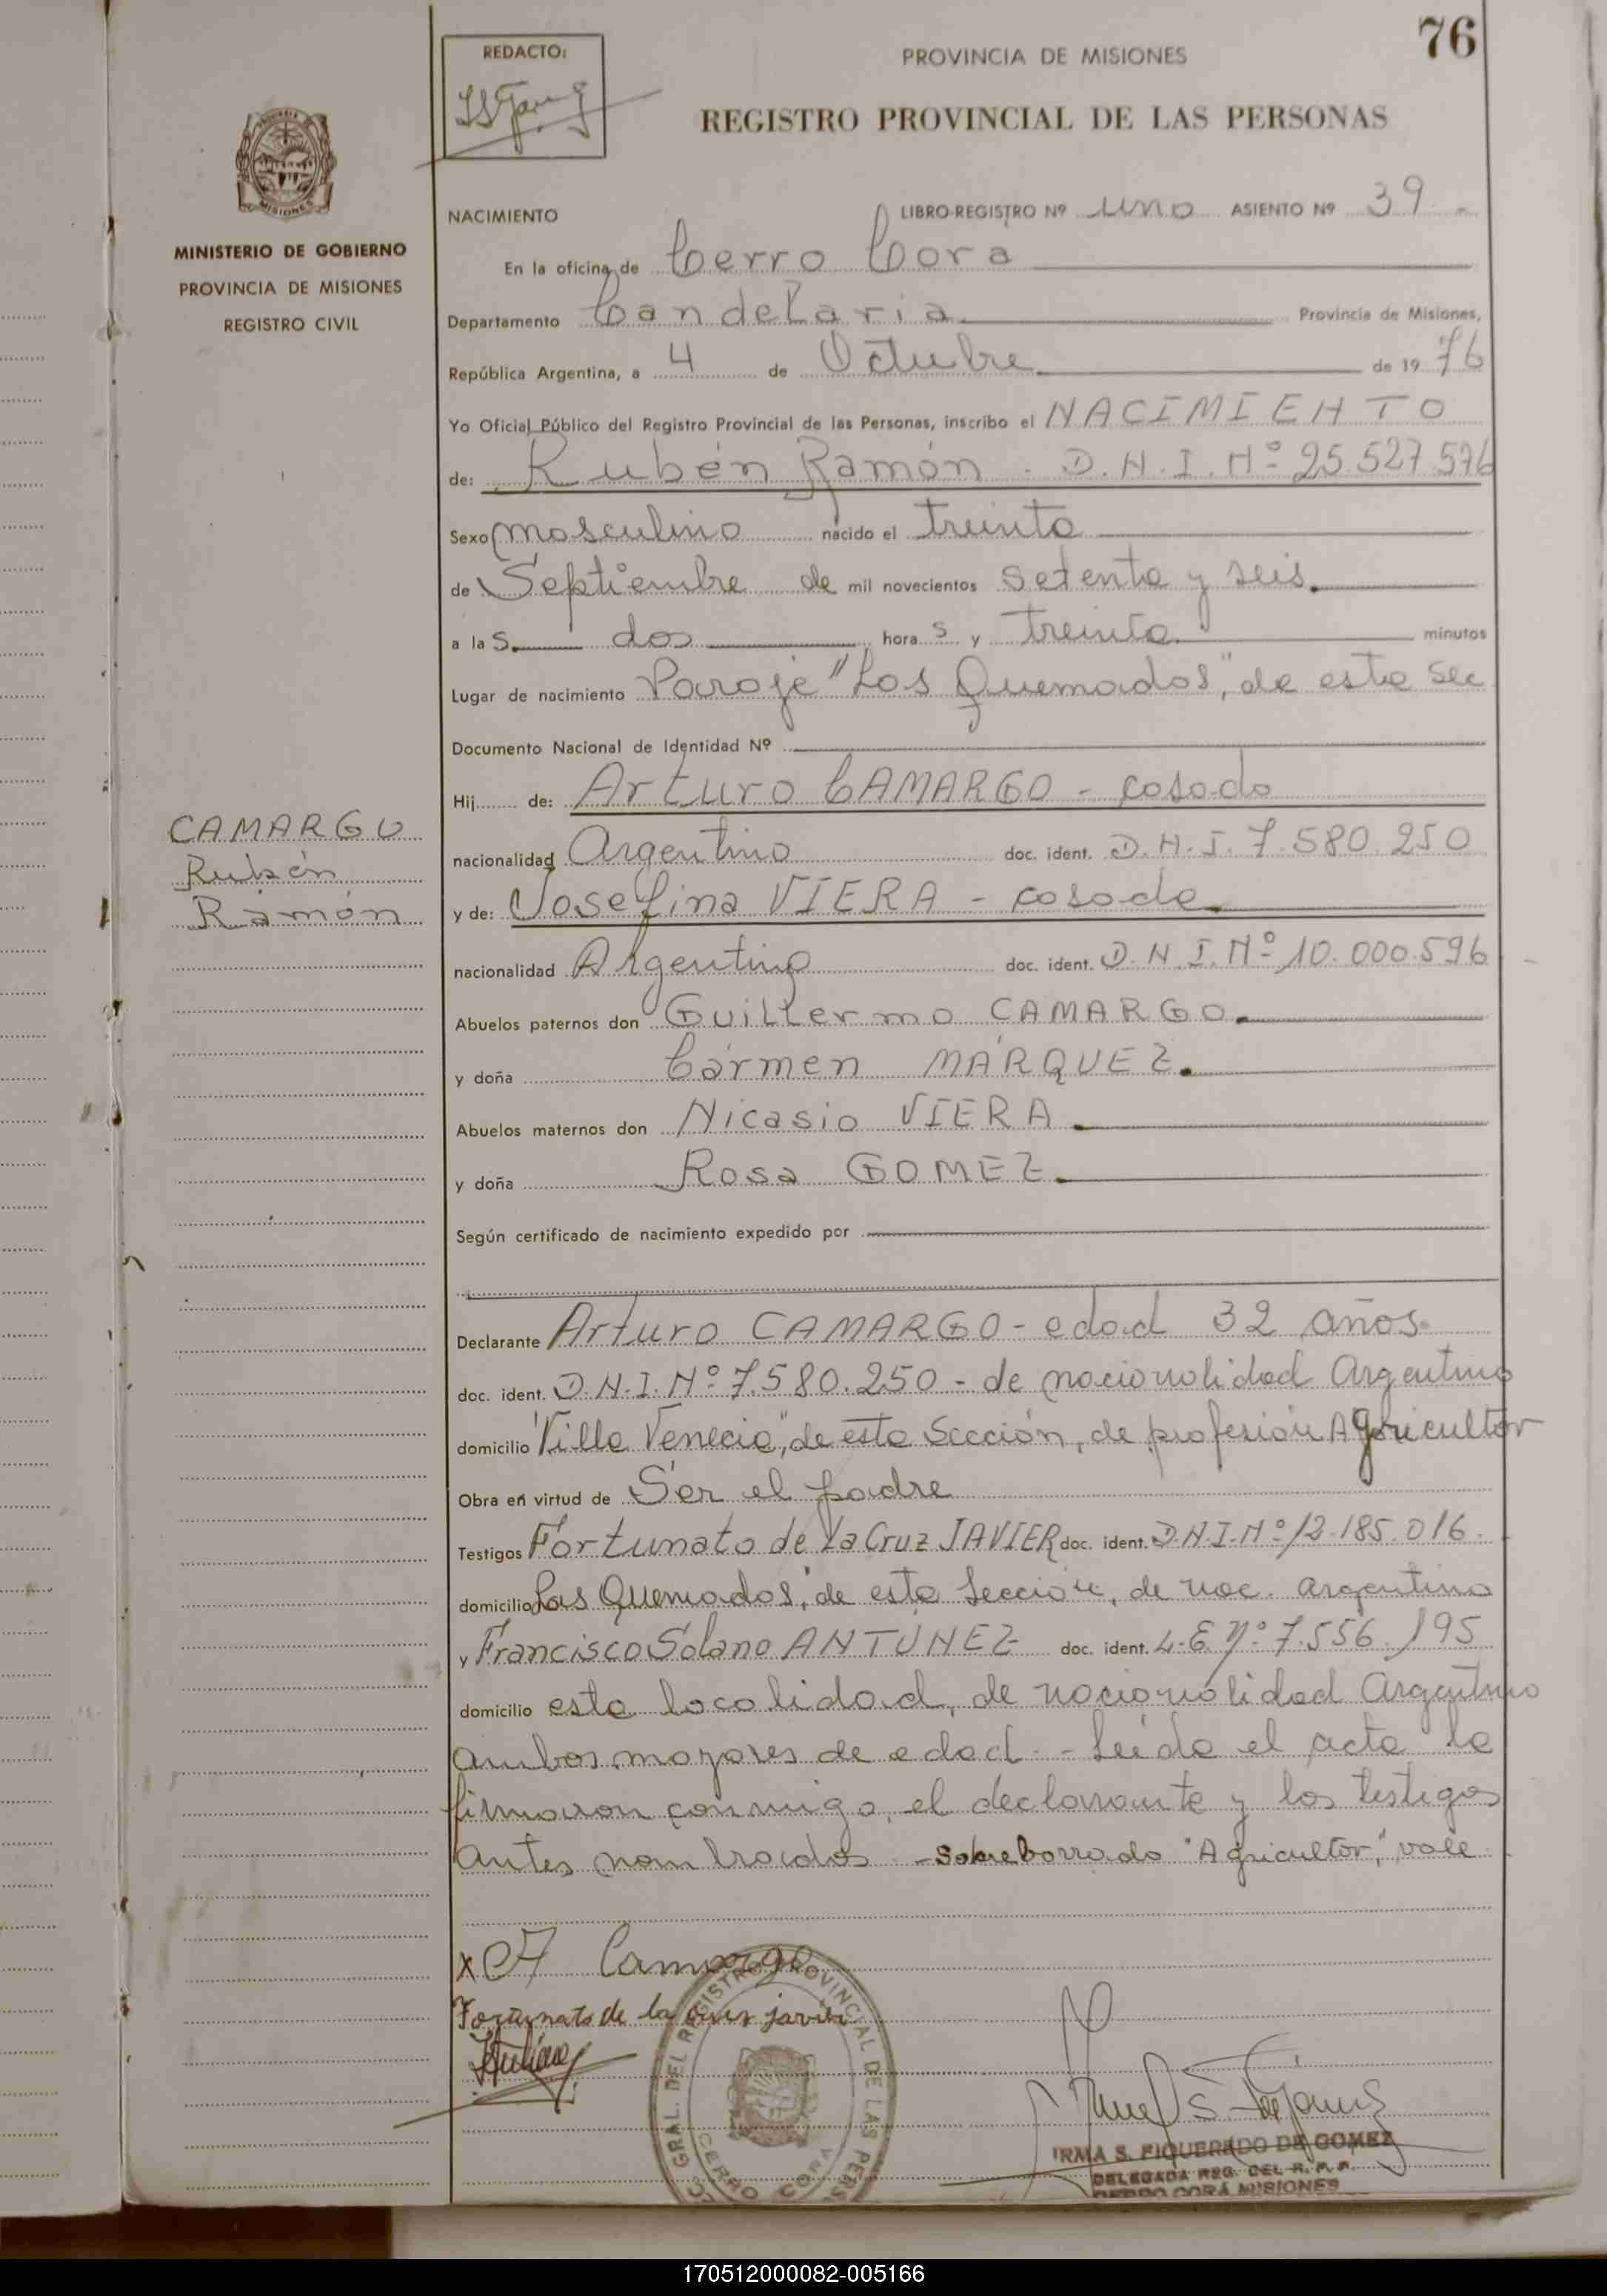 76
REDACTO:
PROVINCIA DE MISIONES
REGISTRO PROVINCIAL DE LAS PERSONAS
MISIONES
MINISTERIO DE GOBIERNO
PROVINCIA DE MISIONES
REGISTRO CIVIL
NACIMIENTO
LIBRO-REGISTRO Nº uno ASIENTO Nº 39.-
En la oficina de Cerro Cora
Departamento Candelaria Provincia de Misiones,
República Argentina, a 4 de Octubre de 1976
Yo Oficial Público del Registro Provincial de las Personas, inscribo el NACIMIENTO
de: Rubén Ramón - D.N.I. Nº 25.527.576
Sexo masculino nacido el treinta
de Septiembre de mil novecientos setenta y seis.
a las dos horas y treinta minutos
Lugar de nacimiento Paraje "Los Quemados", de esta Sec
Documento Nacional de Identidad Nº
Hij de: Arturo CAMARGO - casado
CAMARGO
Rubén
Ramón
nacionalidad Argentino doc. ident. D.N.I. 7.580.250
y de: Josefina VIERA - casada
nacionalidad Argentina doc. ident. D.N.I. Nº 10.000.596
Abuelos paternos don Guillermo CAMARGO
y doña Cármen MÁRQUEZ
Abuelos maternos don Nicasio VIERA
y doña Rosa GOMEZ
Según certificado de nacimiento expedido por
Declarante Arturo CAMARGO - edad 32 años
doc. ident. D.N.I. Nº 7.580.250 - de nacionalidad Argentino
domicilio "Villa Venecia", de esta Sección, de profesión Agricultor
Obra en virtud de Ser el padre
Testigos Fortunato de la Cruz JAVIER doc. ident. D.N.I. Nº 12.185.016.
domicilio Los Quemados", de esta Sección, de nac. argentina
y Francisco Solano ANTÚNEZ doc. ident. L.E. Nº 7.556.195
domicilio esta localidad, de nacionalidad Argentino
ambos mayores de edad. - Leída el acta la
firmaron conmigo, el declarante y los testigos
antes nombrados. - Sobre borrado "Agricultor," vale
x A Camargo
Fortunato de la Cruz javier
GRAL. DEL REGISTRO PROVINCIAL DE LAS PERS
CERRO CORA
IRMA S. FIQUEREDO DE GOMEZ
DELEGADA REG. DEL R. P. P.
CERRO CORA MISIONES
170512000082-005166